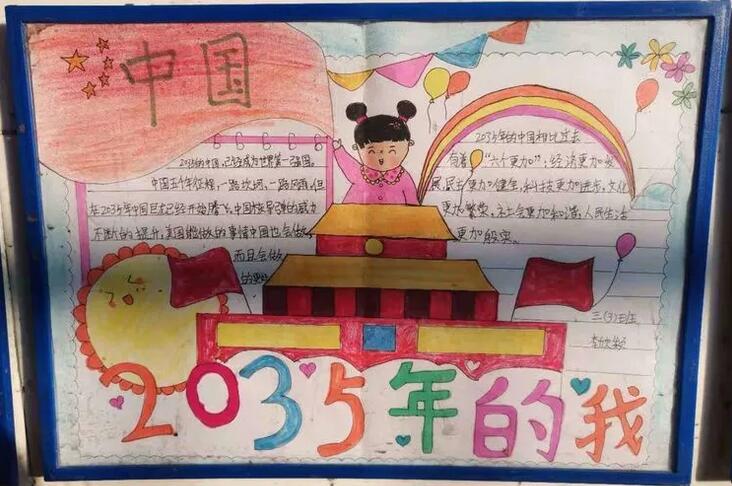 中国
2035年的中国，已经成为世界第一强国。
中国五千年征程，一路坎坷，一路风雨，但
在2035年中国巨龙已经开始腾飞，中国核导弹的威力
不断的提升，美国能做的事情中国也会做，
而且会做
的更好
2035年的中国相比过去
有着“六个更加”，经济更加发
展，民主更加健全，科技更加进步，文化
更加繁荣，社会更加和谐，人民生活
更加殷实。
三(3)班
2035年的我